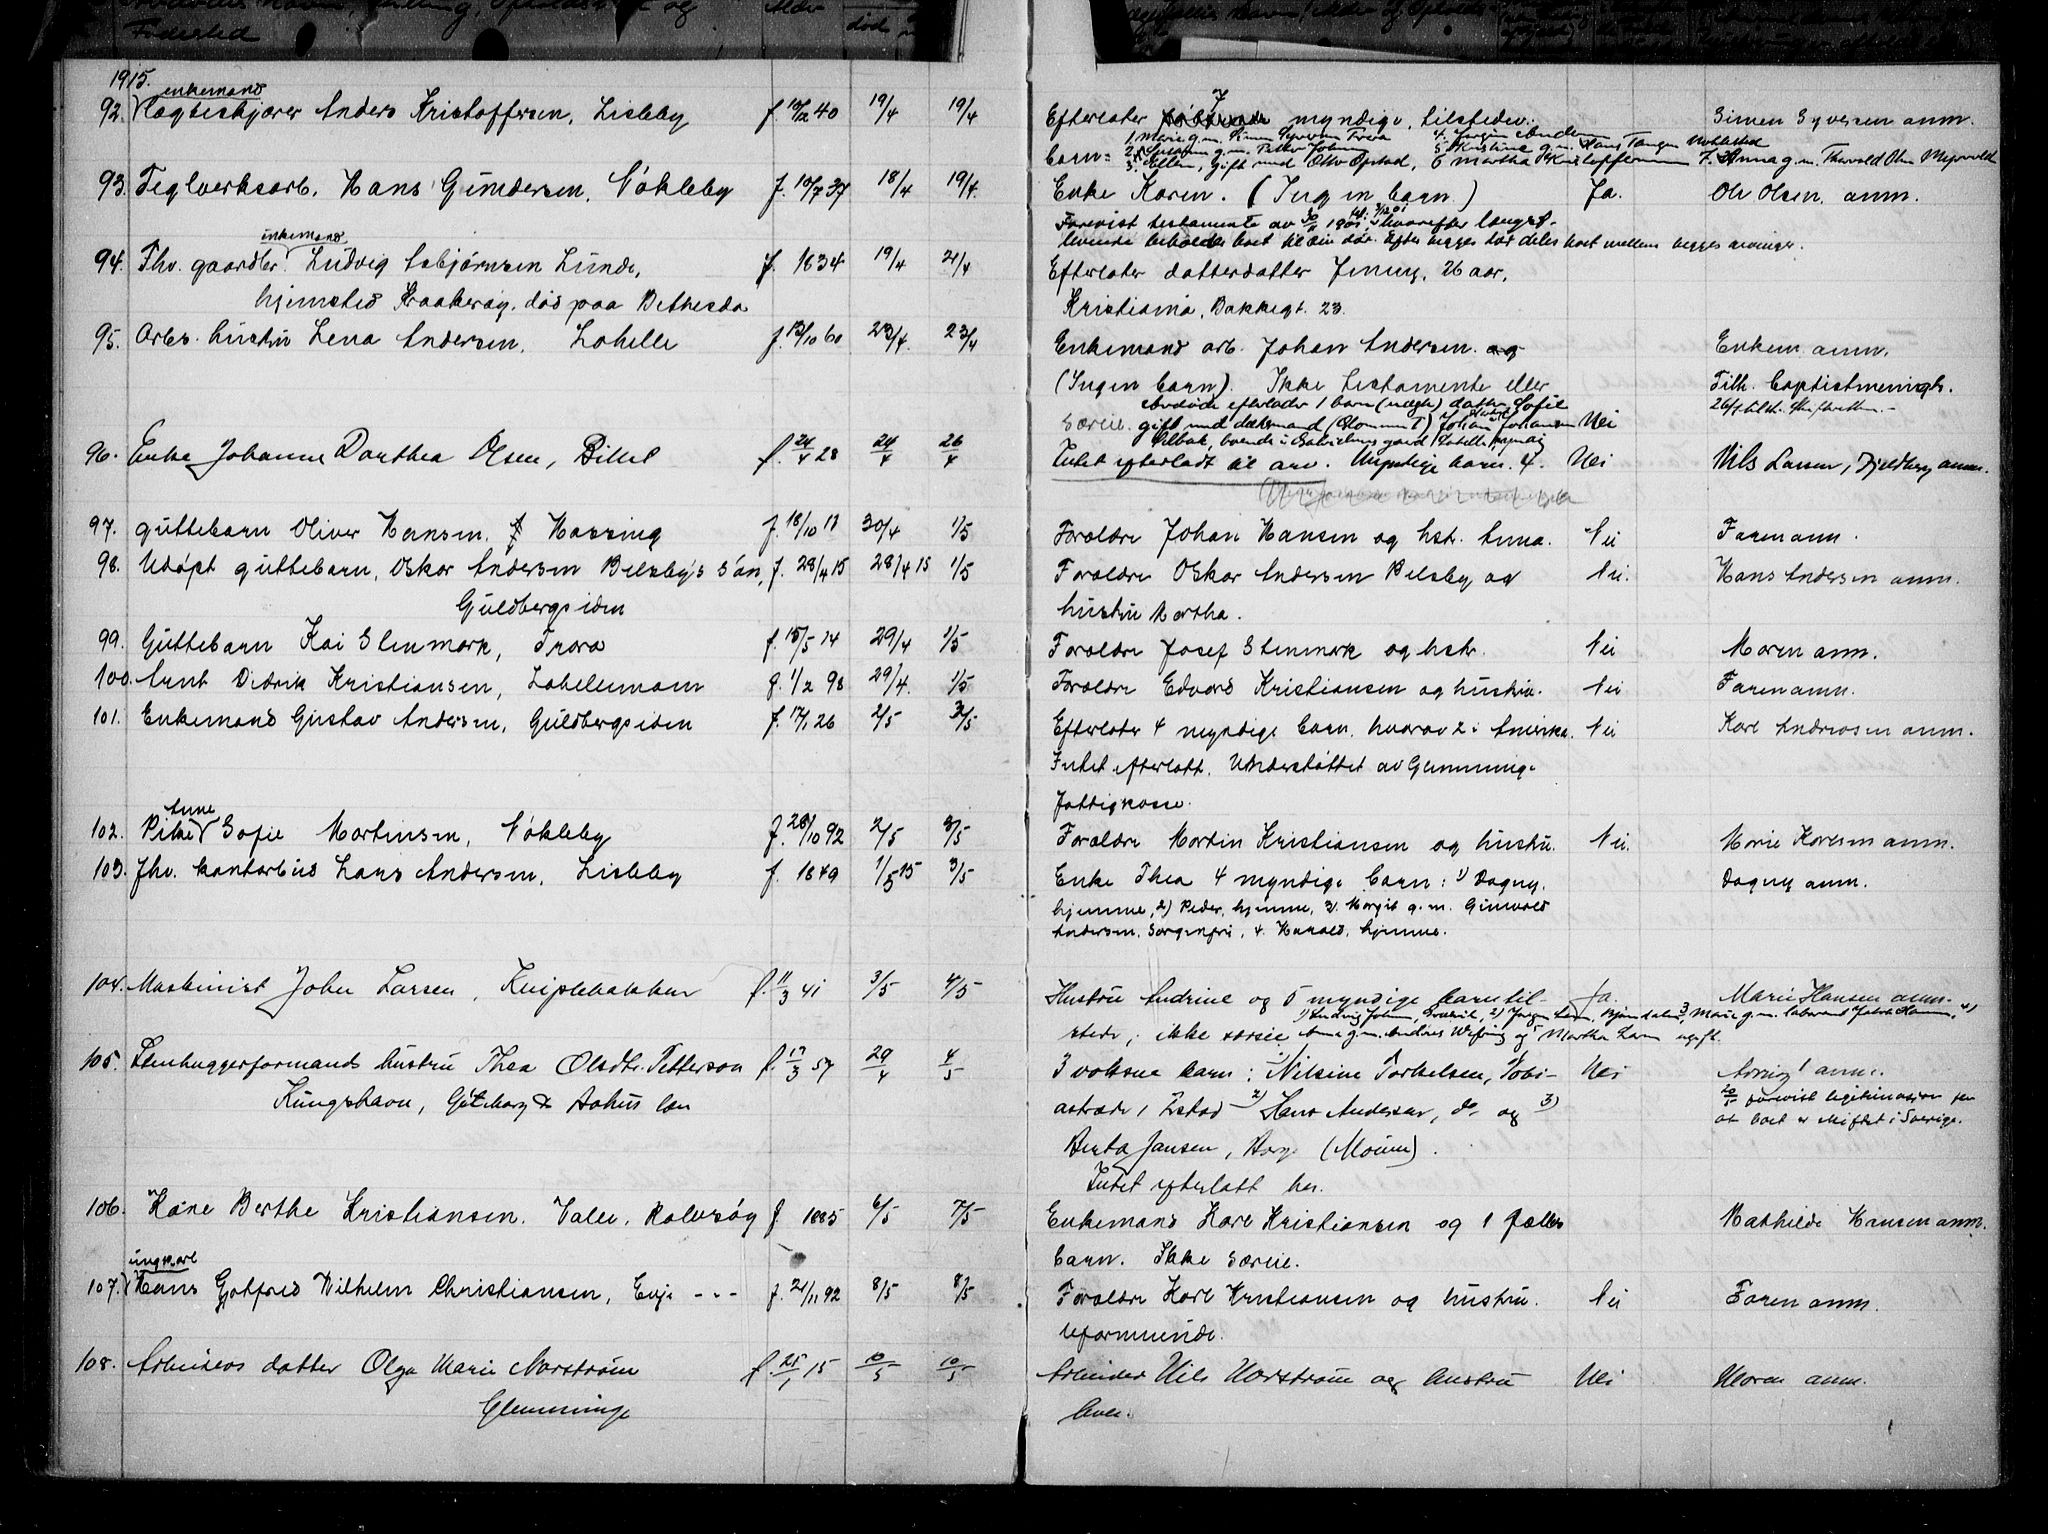 Fødested
Alder
død
1915.
enkemand
92. Vægteskjører Anders Kristoffersen, Lisleby f. 10/12 40 19/4 19/4
Efterlater 7 myndige, tilstede. Simen Syversen anm.
1. Marie g.m. Simen Syversen Trara 4. Jørgen Andersen
Barn: 2. g.m. Petter Johnsen 5 Kristine g.m. Hans Tangen
3. Ellen, gift med Otto Opstad, 6 Martha Kristoffersen 7. Anna g.m. Thorvald Olsen Myrvold
93. Teglverksarb. Hans Gundersen, Nøkleby f. 10/7 37 18/4 19/4.
Enke Karen. (Ingen barn.) Ja. Ole Olsen anm.
Forevist testamente av hvorefter længst-
levende beholder boet til sin død. Efter begges død deles boet mellem begges arvinger.
enkemand
94. Fhv. gaardbr. Ludvig Asbjørnsen Lunde, f. 1834 19/4 21/4
Efterlater datterdatter Jenny, 26 aar,
hjemsted Kraakerøy, død paa Bethesda
Kristiania, Bakkegt. 23.
95. Arbs. hustru Lena Andersen, Labelle f. 13/10 60 23/4. 23/4
Enkemand arb. Johan Andersen og Enkem. anm.
(Ingen barn). Ikke testamente eller Tilh. Baptistmenigh.
Avdøde efterlader 1 barn (uægte) datter Sofie
særeie. gift med dæksmand (Glommen I) Johan Johansen Nei
96. Enke Johanne Dorthea Olsen, Bittel f. 24/4 28 24/4 26/4
Intet efterladt til arv. Umyndige barn. 4. Nei Nils Larsen, Fjeldberg anm.
97. Guttebarn Oliver Hansen, Hassing f. 18/10 13 30/4 1/5
Forældre Johan Hansen og hstr. Anna. Nei Faren anm.
98. Udøpt guttebarn, Oskar Andersen Belsby's søn, f. 28/4 15 28/4 15 1/5
Forældre Oskar Andersen Belsby og Nei. Hans Andersen anm.
Guldbergsiden
hustru Martha.
99. Guttebarn Kai Stenmark, Trara f. 15/5 14 29/4 1/5
Forældre Josef Stenmark og hstr. Nei Moren anm.
100. Arnt Didrik Kristiansen, Labellemoen f. 1/2 98 29/4. 1/5
Forældre Edvard Kristiansen og hustru. Nei Faren anm.
101. Enkemand Gustav Andersen, Guldbergsiden f. 17/1 26 2/5 3/5
Efterlater 4 myndige barn, hvorav 2 i Amerika. Nei Karl Andresen anm.
Intet efterlatt. Understøttet av Glemminge
fattigkasse.
Anne
102. Pike Sofie Martinsen, Nøkleby f. 28/10 92 2/5 3/5
Forældre Martin Kristiansen og hustru. Nei. Marie Karlsen anm.
103. Fhv. kontorbud Lars Andersen, Lisleby f. 1849 1/5 15 3/5
Enke Thea 4 myndige barn: 1) Dagny, Dagny anm.
hjemme, 2) Peder, hjemme, 3. Margit g.m. Gunvald
Andersen, Sorgenfri, 4. Harald, hjemme.
104. Maskinist Johan Larsen, Kniplebakken f. 11/3 41 3/5 4/5
Hustru Andrine og 5 myndige barn til- Ja. Marie Hansen anm.
1) Ludvig Johan, 2) Jørgen Larsen, Bjørndalen, 3, Marie g.m. Jakob Hansen, 4)
stede, ikke særeie Anna g.m. Andreas Wefring og 5 Martha Larsen ugift.
105. Stenhuggerformands hustru Thea Olsdtr. Petterson f. 17/3 57 29/4 4/5
3 voksne barn: 1) Nilsine Torkelsen, Tobi- Nei Arving 1 anm.
Kungshavn, Gøteborg & Bohus len
astræde, Ørstad 2) Hans Andersen, do. og 3)
forevist legitimasjon for
at boet er skiftet i Sverige.
Berta Jansen, Borge (Moum).
Intet efterlatt her.
106. Kone Berthe Kristiansen, Valle, Rolvsøy f. 1885 6/5 7/5
Enkemand Karl Kristiansen og 1 fælles Mathilde Hansen anm.
barn. Ikke særeie.
ungkarl
107. Hans Gotfred Wilhelm Christiansen, Evje - - - f. 21/11 92 8/5 8/5
Forældre Karl Kristiansen og hustru. Nei Faren anm.
Uformuende.
108. Arbeiders datter Olga Marie Norstrøm f. 25/1 15 10/5 10/5
Arbeider Nils Norstrøm og hustru Nei Moren anm.
Glemminge